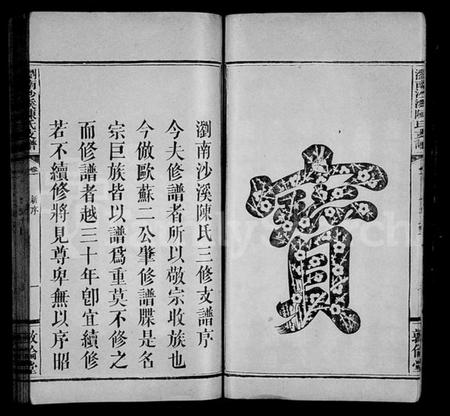 寶
瀏南沙溪陳氏三修支譜序
今夫修譜者所以敬宗收族也
今倣歐蘇二公肇修譜牒是名
宗巨族皆以譜爲重莫不修之
而修譜者越三十年卽宜續修
若不續修將見尊卑無以序昭
瀏南沙溪陳氏支譜
卷一
序
敦倫堂
瀏南沙溪陳氏支譜
敦倫堂